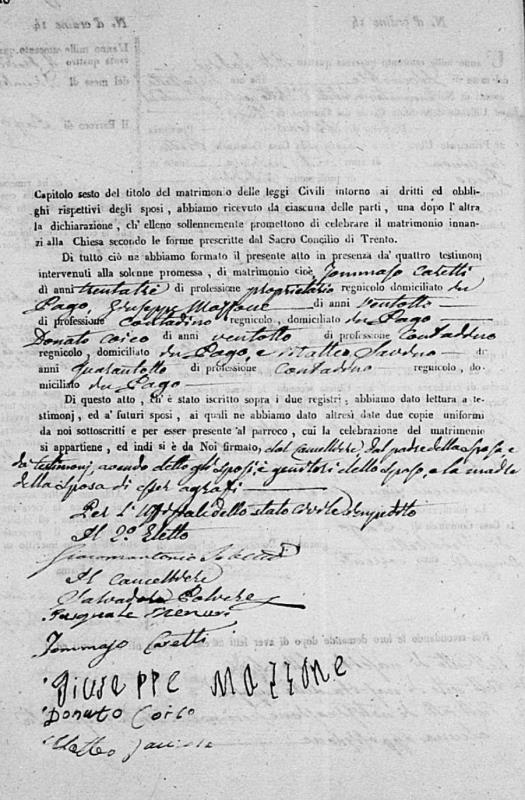 Capitolo sesto del titolo del matrimonio delle leggi Civili intorno ai dritti ed obbli-
ghi rispettivi degli sposi, abbiamo ricevuto da ciascuna delle parti, una dopo l'altra
la dichiarazione, ch' elleno sollennemente promettono di celebrare il matrimonio innan-
zi alla Chiesa secondo le forme prescritte dal Sacro Concilio di Trento.
Di tutto ciò ne abbiamo formato il presente atto in presenza da' quattro testimonj
intervenuti alla solenne promessa, di matrimonio cioè Tommaso Caretti
di anni trentatrè di professione proprietario regnicolo domiciliato in
Pago, Giuseppe Mazzone di anni ventotto
di professione Contadino regnicolo, domiciliato in Pago
Donato Coico di anni ventotto di professione Contadino
regnicolo, domiciliato in Pago, e Matteo di
anni quarantotto di professione Contadino regnicolo, do-
miciliato in Pago
Di questo atto, ch'è stato iscritto sopra i due registri, abbiamo dato lettura a te-
stimonj, ed a' futuri sposi, ai quali ne abbiamo dato altresì date due copie uniformi
da noi sottoscritti e per esser presente al parroco, cui la celebrazione del matrimonio
si appartiene, ed indi si è da Noi firmato, dal cancelliere, dal padre della sposa, e
da testimonj, avendo detto gli sposi, i genitori dello sposo, e la madre
della sposa di esser
Per l'Uffiziale dello stato civile impedito
Il 2º Eletto
Il Cancelliere
Salvadore
Pasquale
Tommaso Caretti
Giuseppe Mazzone
Donato Coico
Matteo